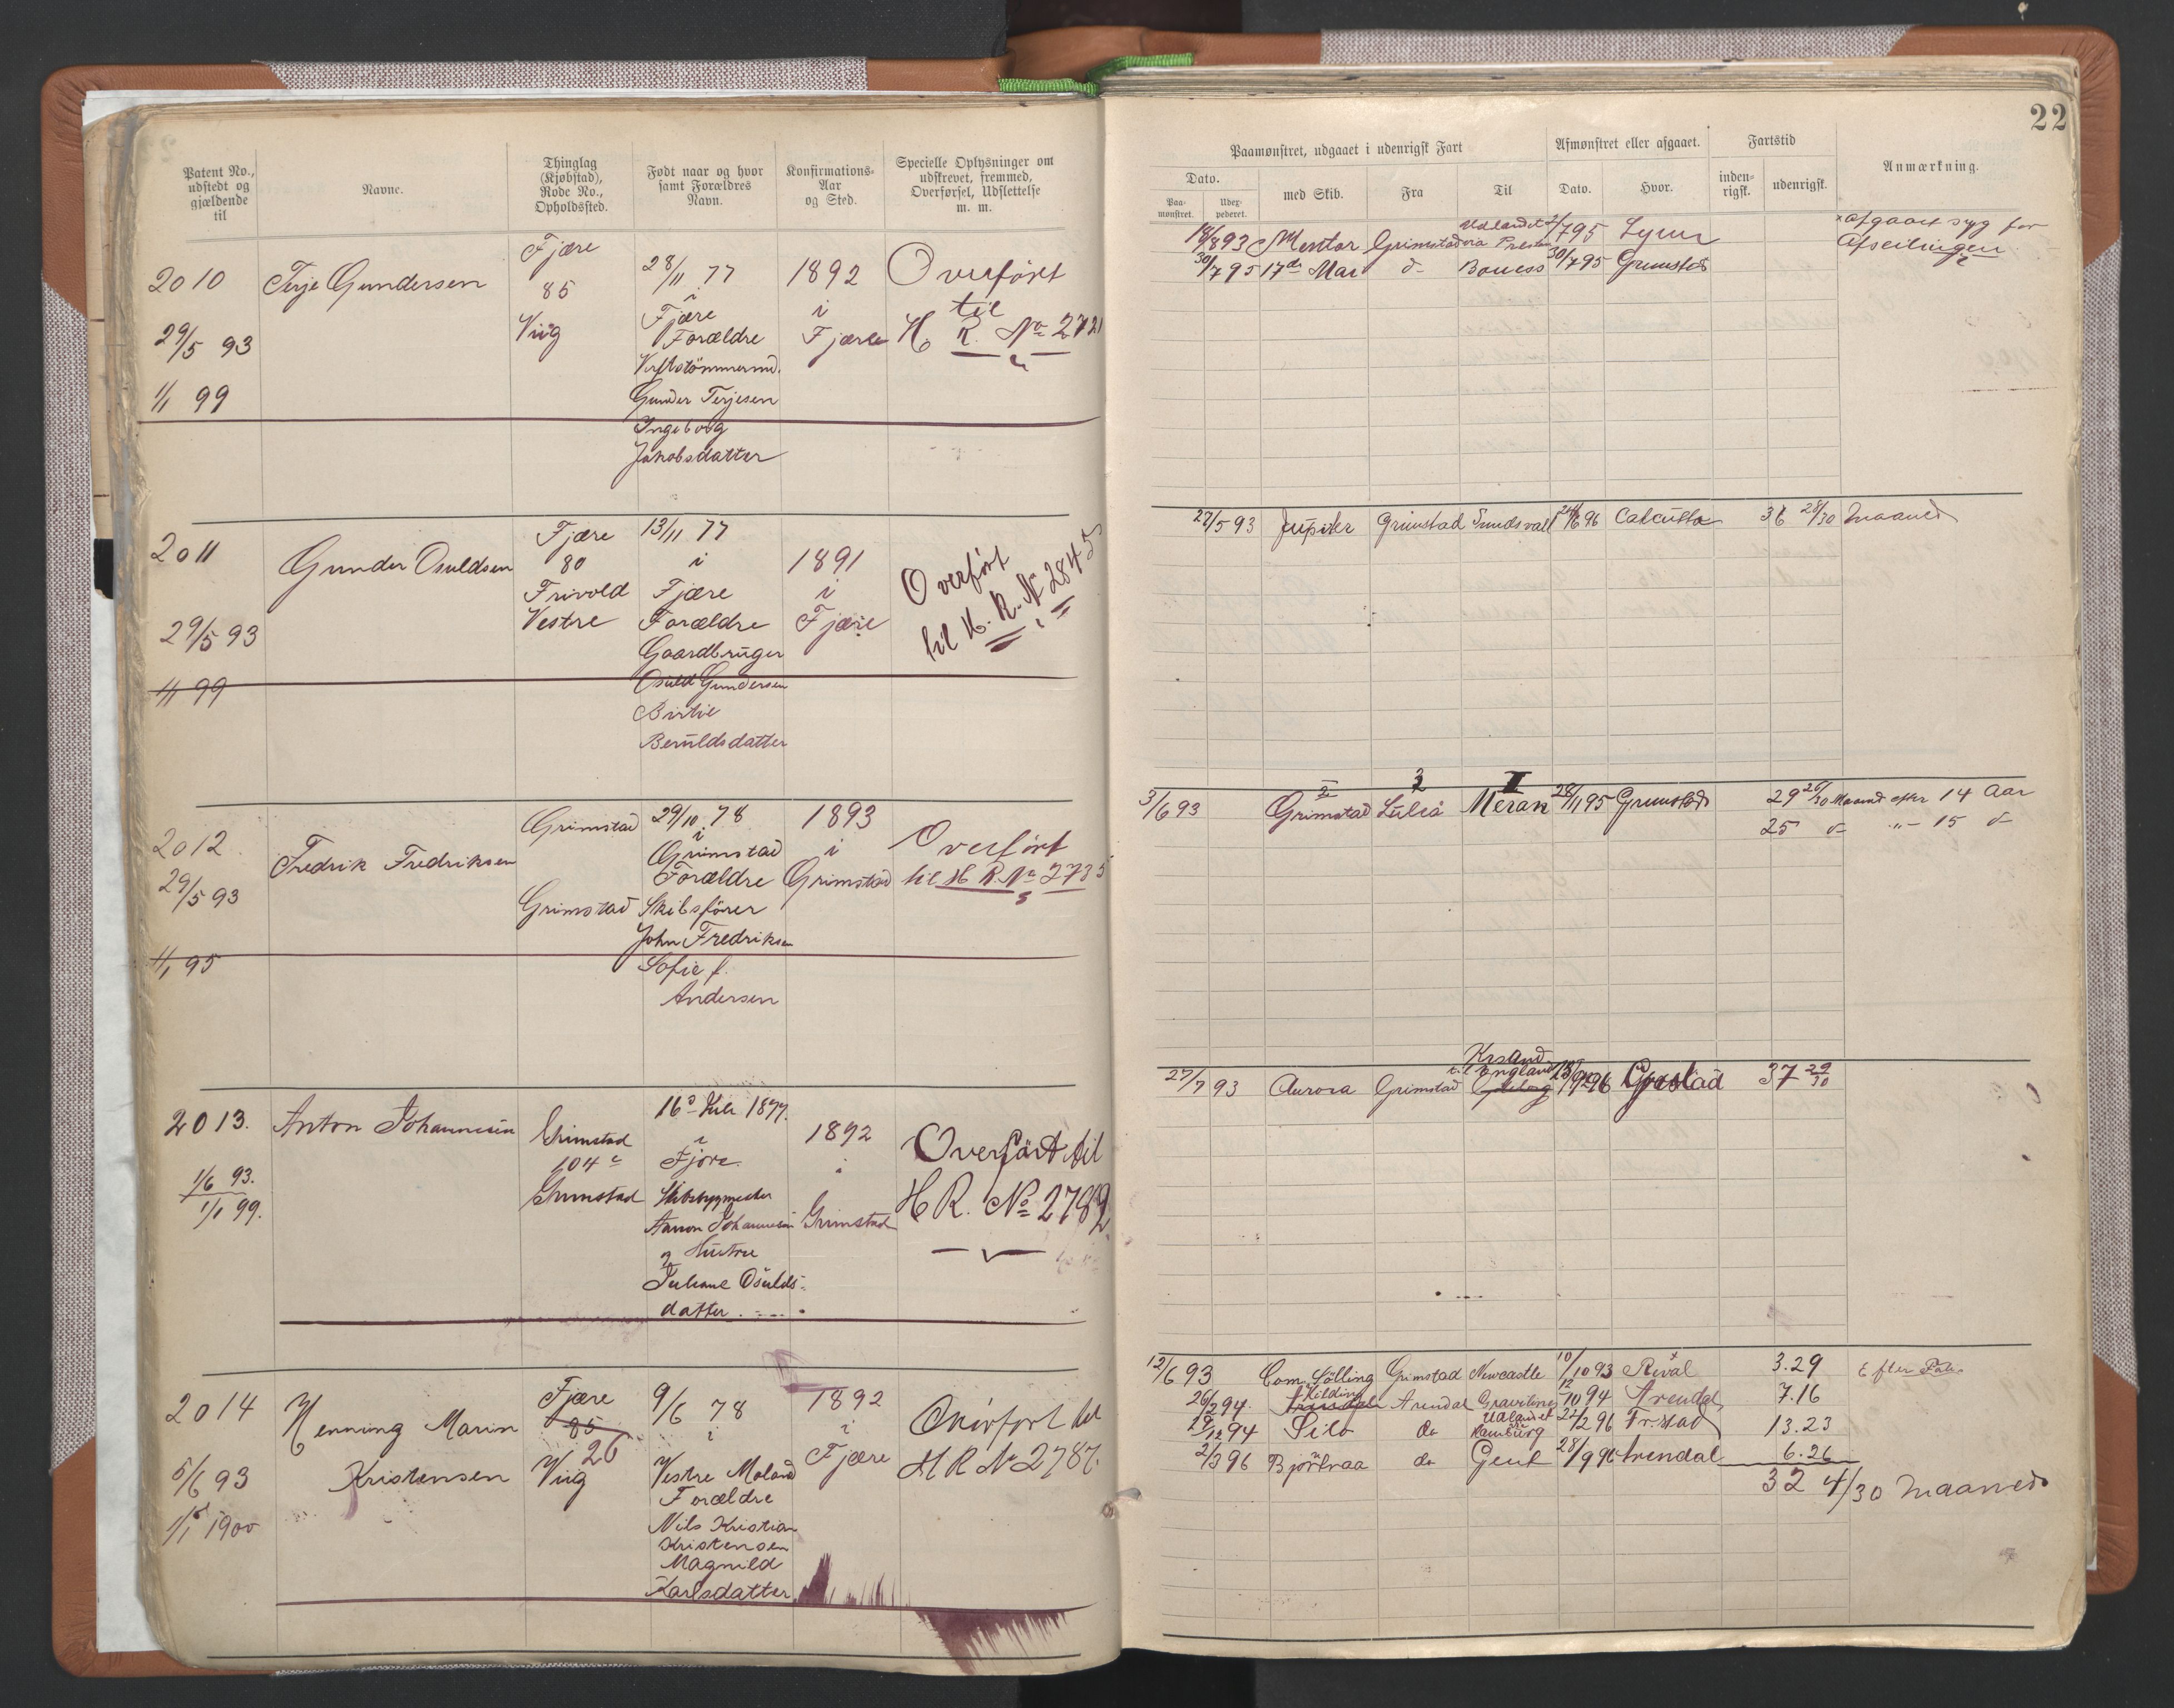 22
Patent No., udstedt og gjældende til
Navne.
Thinglag (Kjøbstad), Rode No., Opholdssted.
Født naar og hvor samt Forældres Navn.
Konfirmations-Aar og Sted.
Specielle Oplysninger om udskrevet, fremmed, Overførsel, Udslettelse m. m.
Paamønstret, udgaaet i udenrigsk Fart
Dato.
Paa-mønstret.
Udex-pederet.
med Skib.
Fra
Til
Afmønstret eller afgaaet.
Dato.
Hvor.
Fartstid
inden-rigsk.
udenrigsk.
Anmærkning.
2010
29/5 93
1/1 99
Terje Gundersen
Fjære
85
Viig
28/11 77
i
Fjære
Forældre
Gunder Terjesen
Ingeborg
Jakobsdatter
1892
i
Fjære
Overført
til
H. R. No 2721
18/8 93 Mentor Grimstad Udlandet via 2/7 95
30/7 95 17de Mai d- Boness 30/7 95 Grimstad
Afgaaet syg før
Afseilingen
2011
29/5 93
1/1 99
Gunder Osuldsen
Fjære
80
Frivold
Vestre
13/11 77
i
Fjære
Forældre
Gaardbruger
Osuld Gundersen
Birtie
Beruldsdatter
1891
i
Fjære
Overført
til H. R. No 2845
27/5 93 Jupiter Grimstad Sundsvall 24/6 96 Calcutta 36 28/30 Maaned
2012
29/5 93
1/1 95
Fredrik Fredriksen
Grimstad
Grimstad
29/10 78
i
Grimstad
Forældre
Skibsfører
John Fredriksen
Sofie f.
Andersen
1893
i
Grimstad
Overført
til H R. No 2735
3/6 93 Grimstad Luleå Meran 28/11 95 Grimstad 29 26/30 Maaned efter 14 Aar
25 d- -"- 15 d-
2013.
1/6 93.
1/1 99.
Anton Johannesen
Grimstad
104 c
Grimstad
1877.
i
Fjære.
Skibsbygmester
Aanon Johannesen
& Hustru
Juliane Osulds-
datter.
1892
i
Grimstad
Overført til
H R. No 2782
27/7 93 Aurora Grimstad Krsand til England 96 37 29/30
2014
5/6 93
1/1 1900
Henning Marin
Kristensen
Fjære
85
26
Viig
9/6 78
i
Vestre Moland
Forældre
Nils Kristian
Kristensen
Magnild
Karlsdatter
1892
i
Fjære
Overført til
H R No 2787.
12/6 93 Com. Sölling Grimstad Newcastle 10/10 93 Reval 3.29
26/2 94. Kilding Arendal Gravelines 12/10 94 Arendal 7.16
29/12 94 Silo do Udlandet Hamburg 24/2 96 Fr.stad 13.23
2/3 96 Björkraa do Gent 28/9 96 Arendal 6.26
32 4/30 Maaned